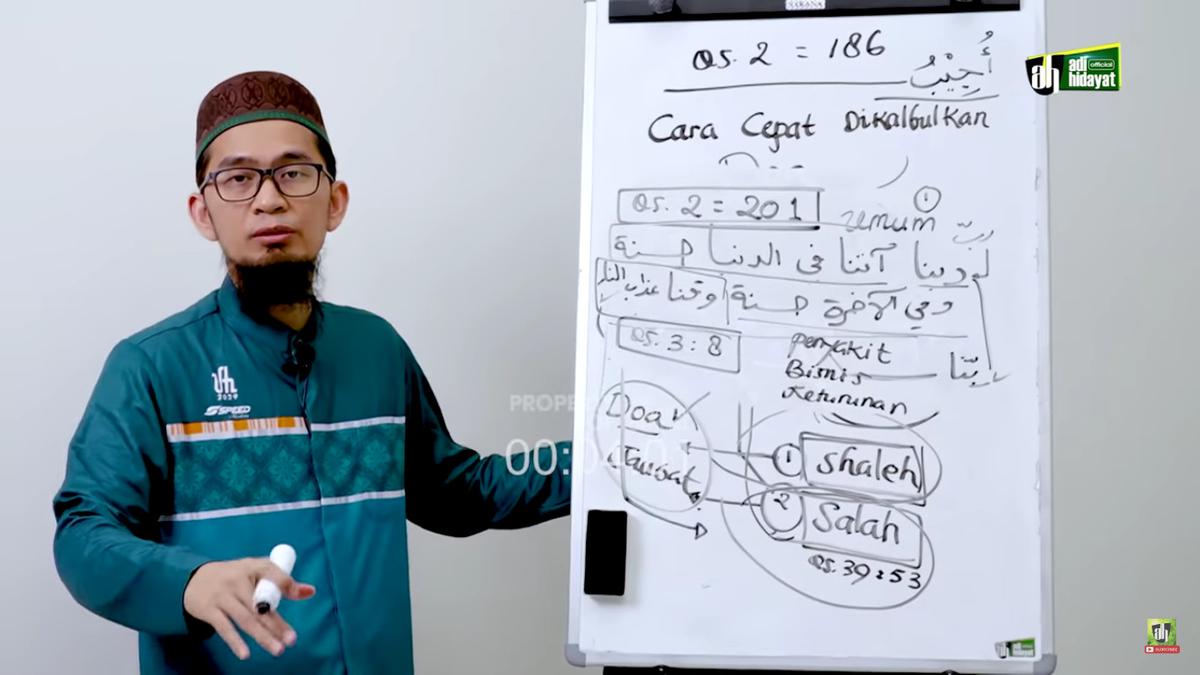 QS. 2 = 186
أُجِيْبُ
adi official
hidayat
Cara Cepat Dikalbulkan
QS. 2 = 201
1
umum
ربّ
ربنا آتنا فى الدنيا حسنة
وفي الآخرة حسنة وقنا عذاب النار
QS. 3 : 8
Penyakit
Bisnis
Keturunan
ربّنا
Doa
1 Shaleh
2 Salah
QS. 39 : 53
00:
SPEED
SUBSCRIBE